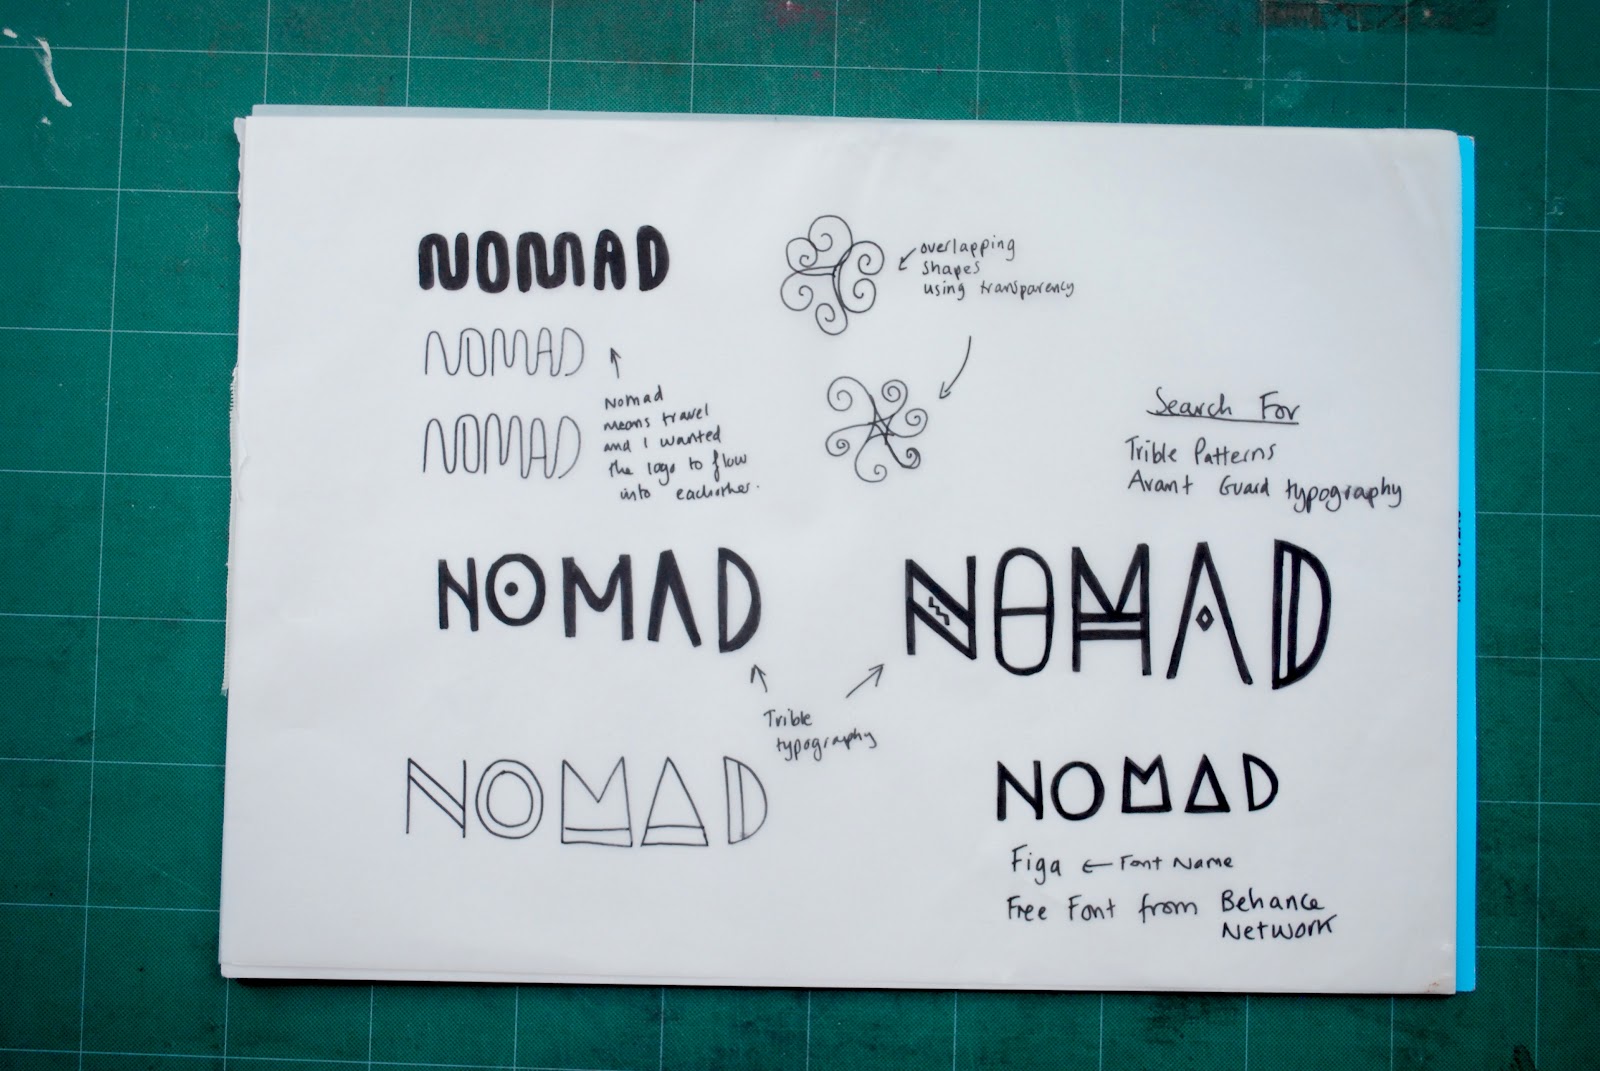 NOMAD
NOMAD
NOMAD
Nomad
means travel
and I wanted
the logo to flow
into eachother.
overlapping
shapes
using transparency
Search For
Trible Patterns
Avant Guard typography
NOMAD
NOMAD
Trible
typography
NOMAD
NOMAD
Figa ← Font Name
Free Font from Behance
Network